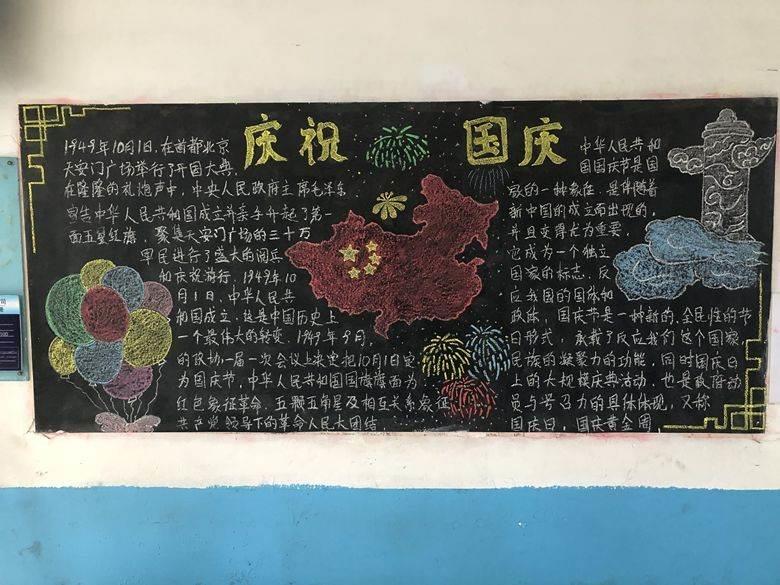 庆祝
国庆
1949年10月1日,在首都北京
天安门广场举行了开国大典.
在隆隆的礼炮声中,中央人民政府主席毛泽东
宣告中华人民共和国成立并亲手升起了第一
面五星红旗,聚集天安门广场的三十万
军民进行了盛大的阅兵
和庆祝游行,1949年10
月1日,中华人民共
和国成立,这是中国历史上
一个最伟大的转变,1949年9月,
的政协一届一次会议上决定把10月1日定
为国庆节,中华人民共和国国旗旗面为
红色象征革命,五颗五角星及相互关系象征
共产党领导下的革命人民大团结,
中华人民共和
国国庆节是国
家的一种象征,是伴随着
新中国的成立而出现的,
并且变得尤为重要,
它成为一个独立
国家的标志,反
应我国的国体和
政体,国庆节是一种新的,全民性的节
日形式,承载了反应我们这个国家
民族的凝聚力的功能,同时国庆日
上的大规模庆典活动,也是政府动
员与号召力的具体体现,又称
国庆日,国庆黄金周